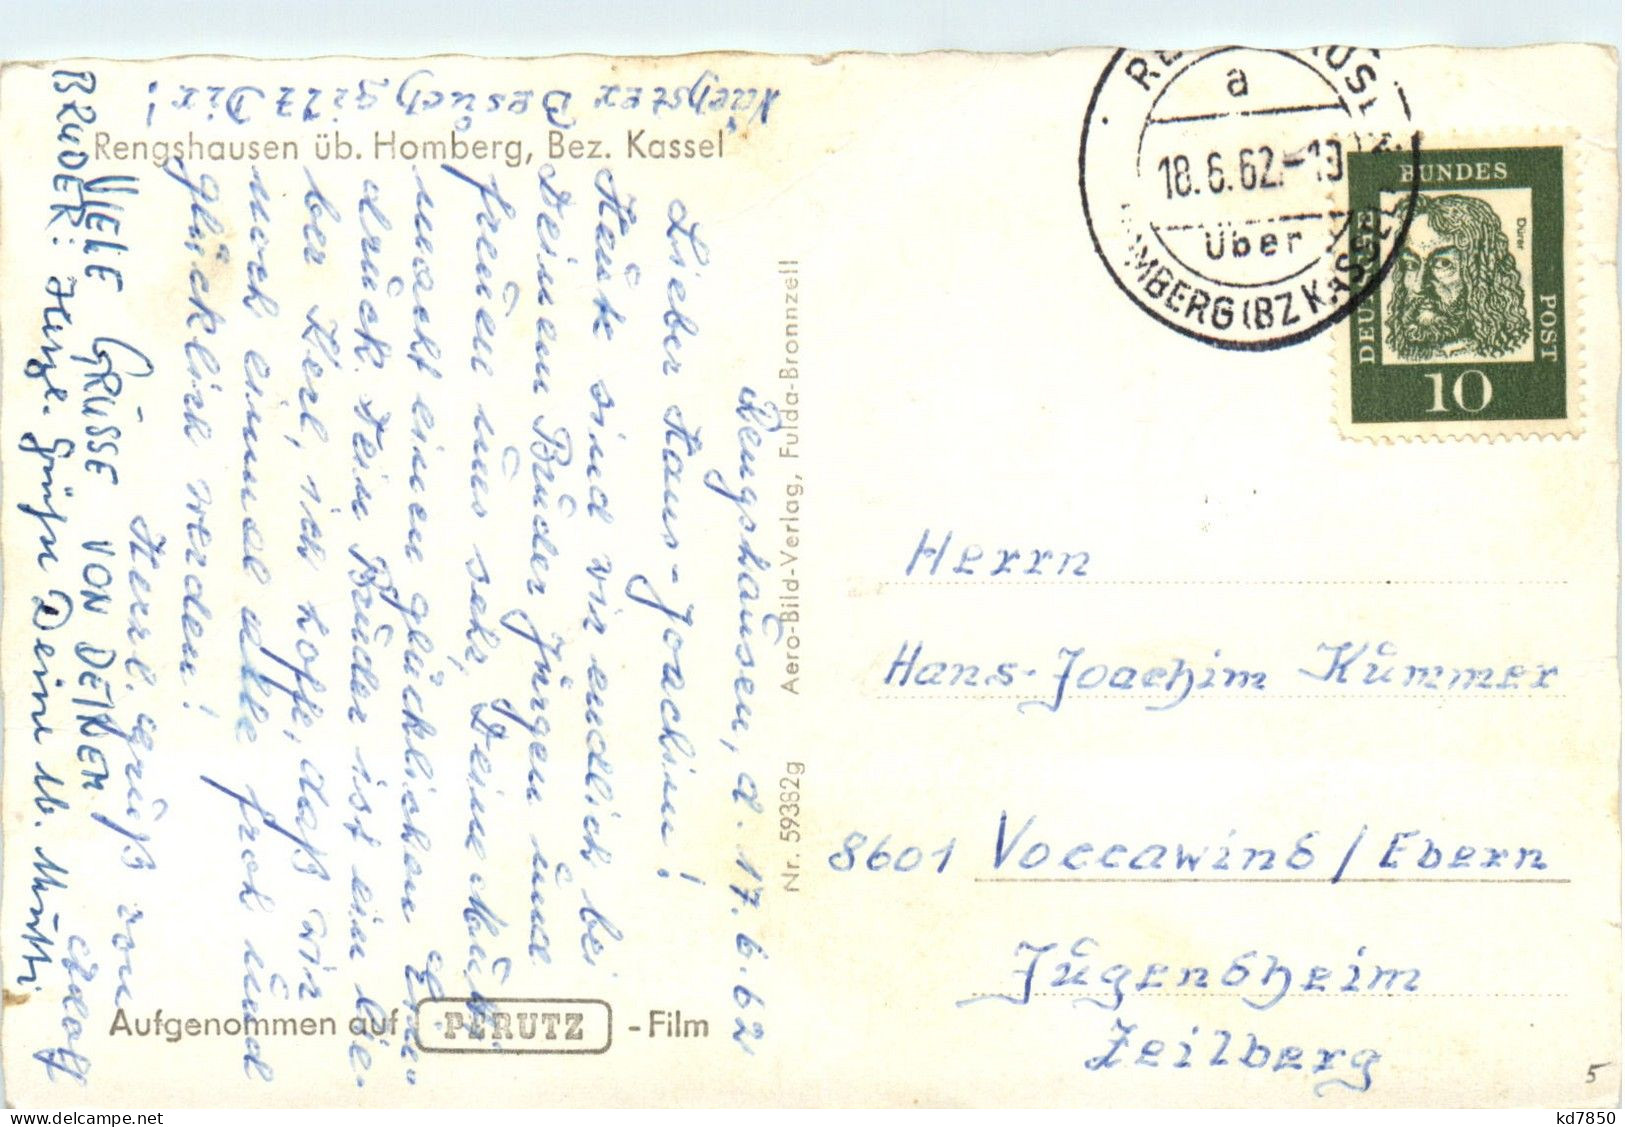 Rengshausen üb. Homberg, Bez. Kassel
Rengshausen, d. 17.6.62
Lieber Hans-Joachim!
Heute sind wir endlich bei
Deinem Bruder Jürgen und
freuen uns sehr, Deine Mutti
macht einen glücklichen Ein-
druck. Dein Bruder ist ein lie-
ber Kerl, ich hoffe, daß wir
noch einmal alle froh und
glücklich werden!
Herzl. Gruß von
Adolf
VIELE GRÜSSE VON DEINEM
BRUDER: Herzl. Grüße Deine lb. Mutti
Nächster Besuch gilt Dir!
Aufgenommen auf PERUTZ -Film
Nr. 59382g Aero-Bild-Verlag, Fulda-Bronnzell
a
18.6.62.-19
über
HOMBERG (BZ KASSEL)
DEUTSCHE
BUNDES
POST
Dürer
10
Herrn
Hans-Joachim Kummer
8601 Voccawind / Ebern
Jugendheim
Zeilberg
5
kd7850
delcampe.net